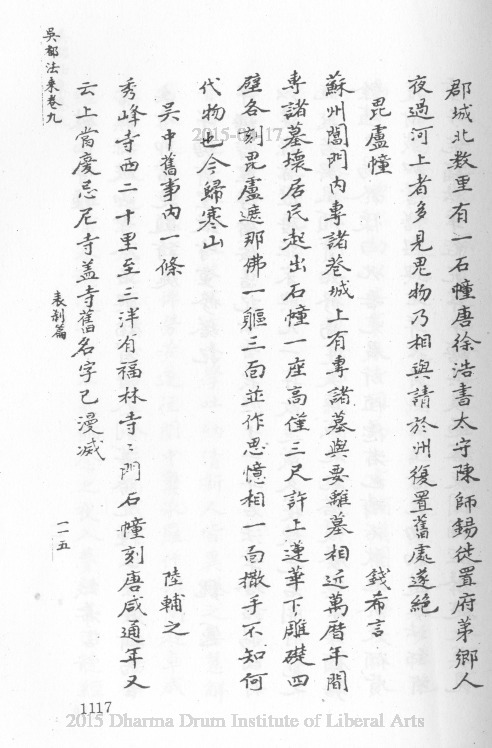 郡城北数里有一石幢唐徐浩書太守陳師錫徙置府苐鄉人
夜過河上者多見鬼物乃相與請於州復置舊處遂絶
毘盧幢　錢希言
蘇州閶門內專諸巷城上有專諸墓與要離墓相近萬曆年間
專諸墓壞居民起出石幢一座高僅三尺許上蓮華下雕礎四
壁各刻毘盧遮那佛一軀三面並作思憶相一面撒手不知何
代物也今歸寒山
吳中舊事內一條　陸輔之
秀峰寺西二十里至三洋有福林寺〻門石幢刻唐咸通年又
云上當慶忌尼寺蓋寺舊名字已漫滅
吳都法乘卷九
表刹篇
一一五
1117
2015 Dharma Drum Institute of Liberal Arts